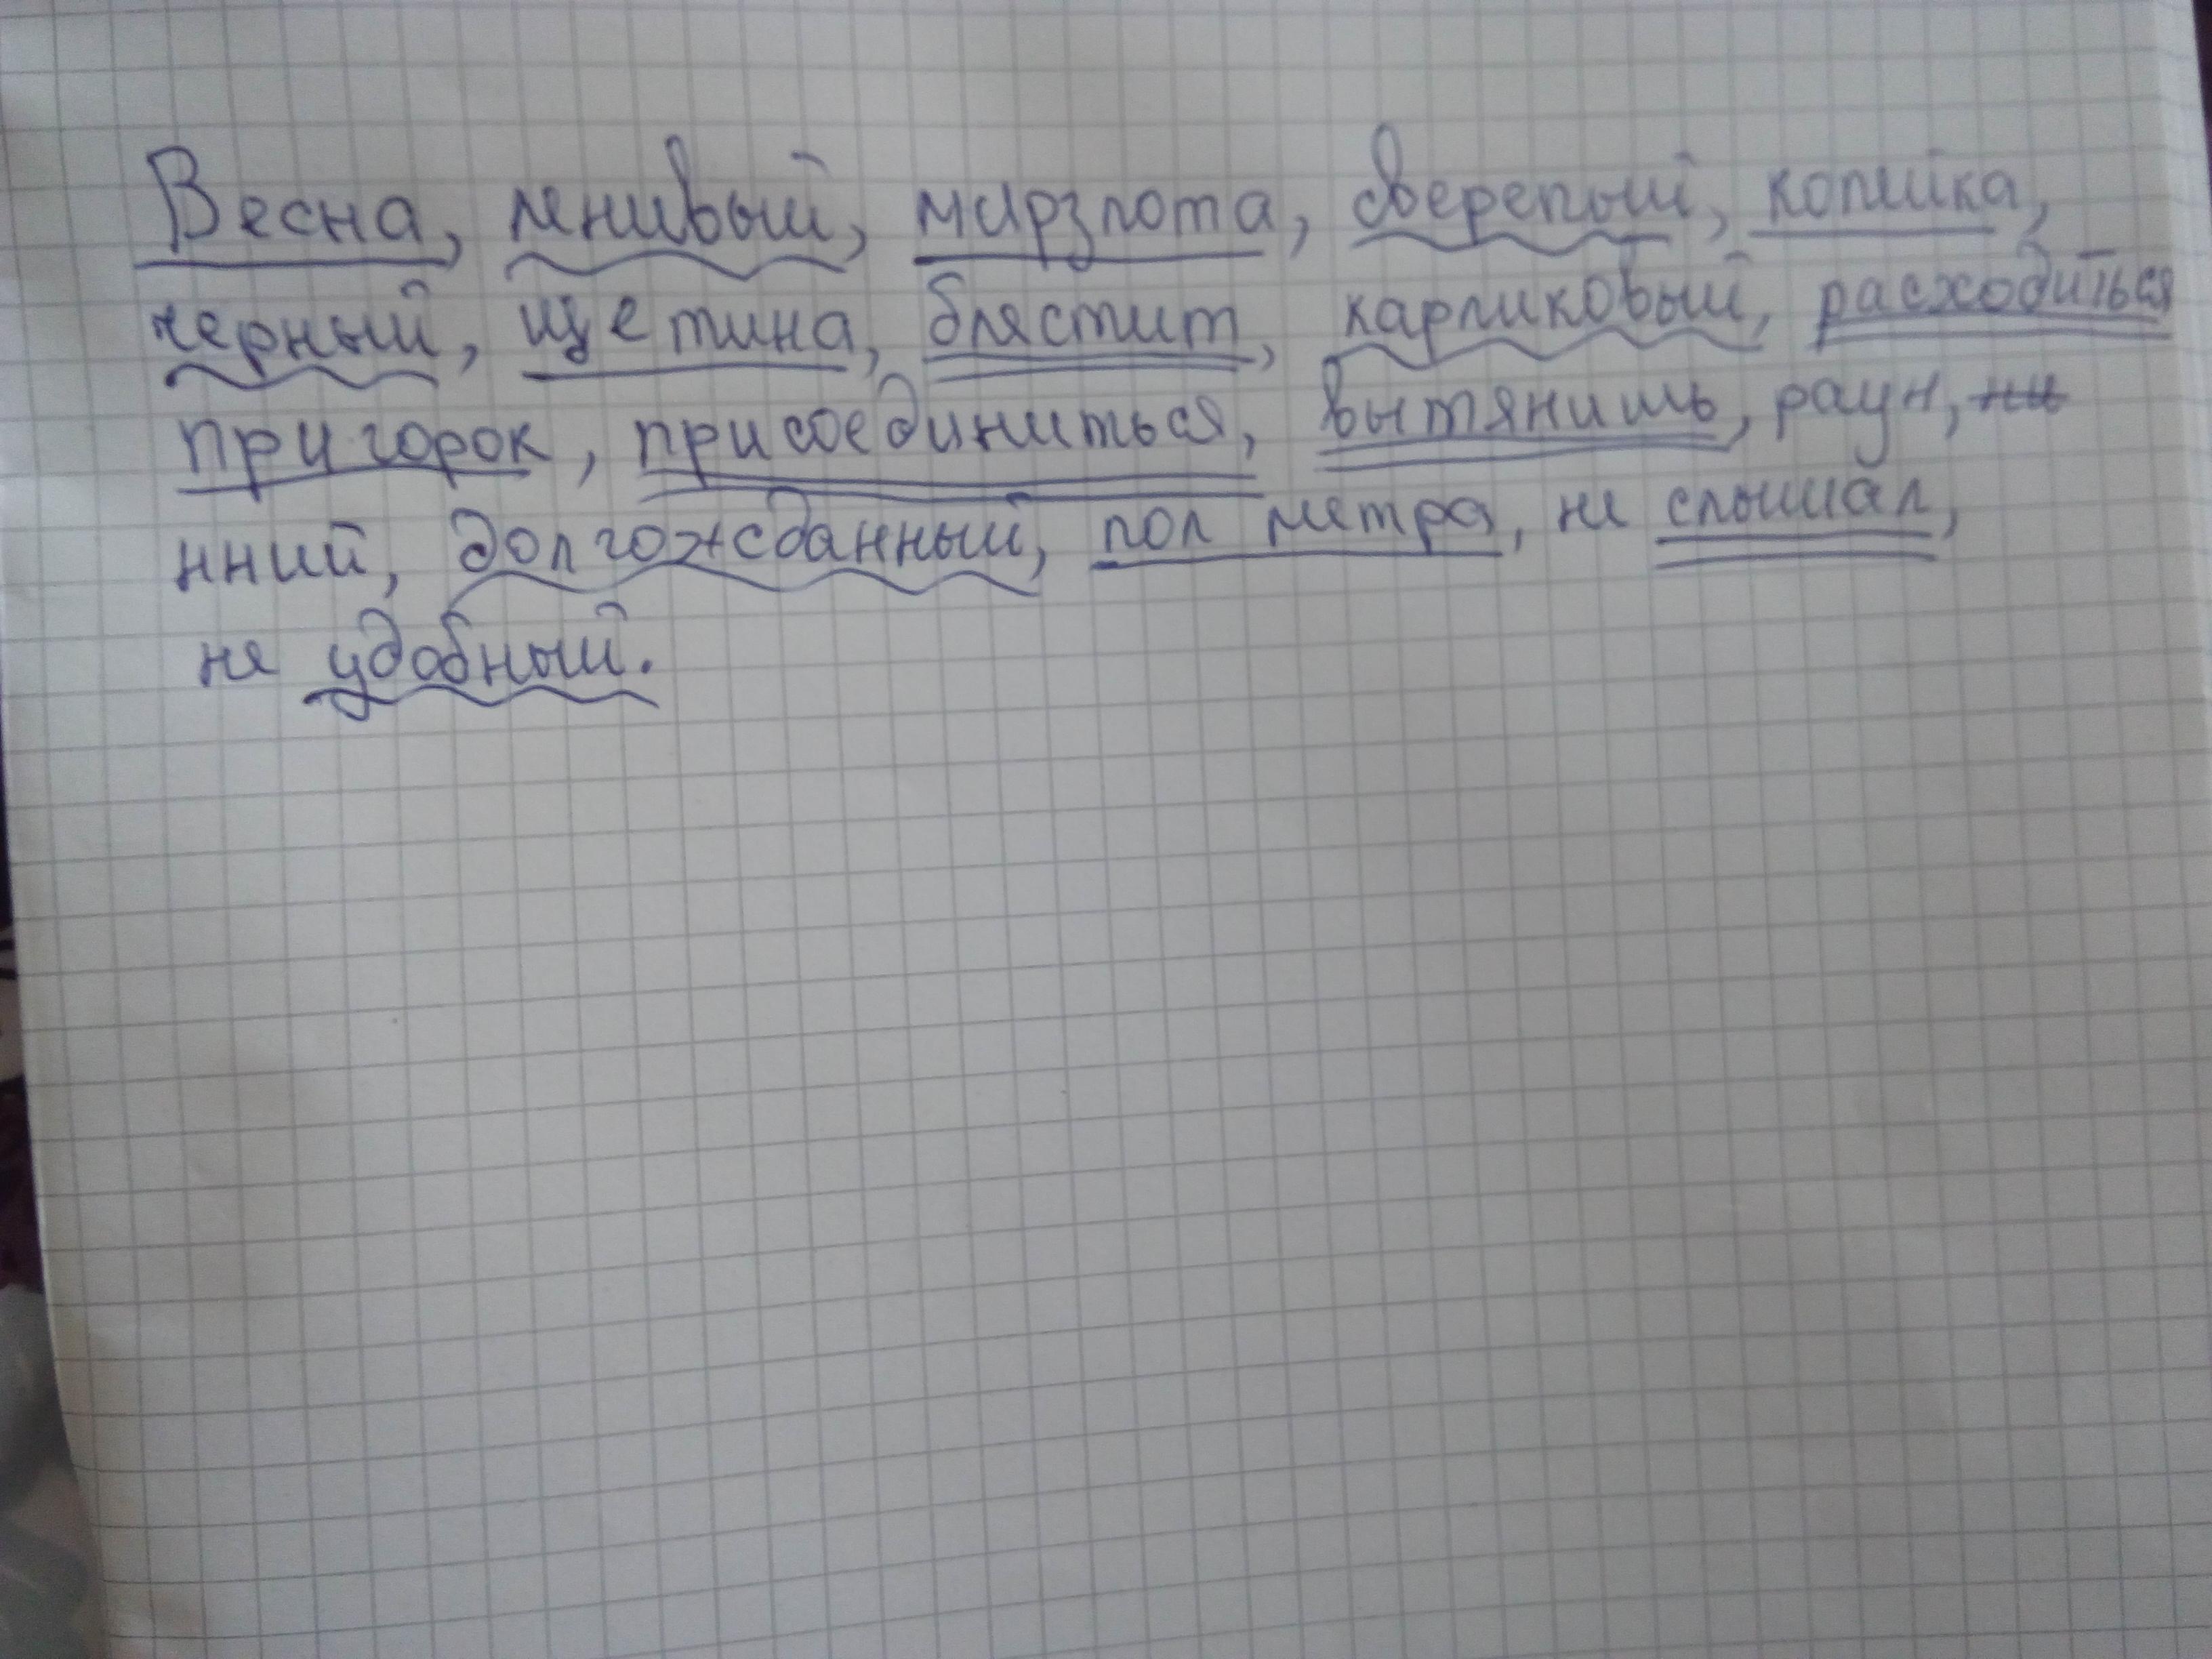 Весна, ленивый, мирзлота, сверепый, копийка,
черный, щетина, блястит, карликовый, расходиться
пригорок, присоединиться, вытянишь, раун,
нний, долгожданный, пол метра, не слышал,
не удобный.